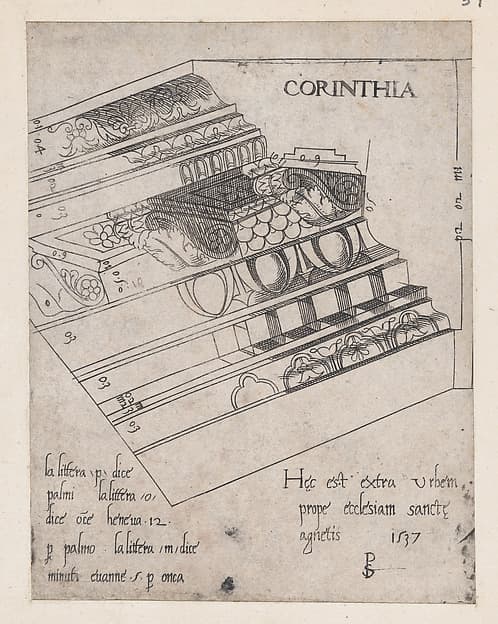 CORINTHIA
0.9
0.5
p2 02 m3
03
0.9
03
03
03
la littera .p. dice
palmi la littera /o/
dice oc̄e heneua .12.
p̱ palmo . la littera /m/ dice
minuti euanne .5. p̱ onca
Hęc est extra vrbem
prope ecclesiam sanctę
agnetis 1537
PS